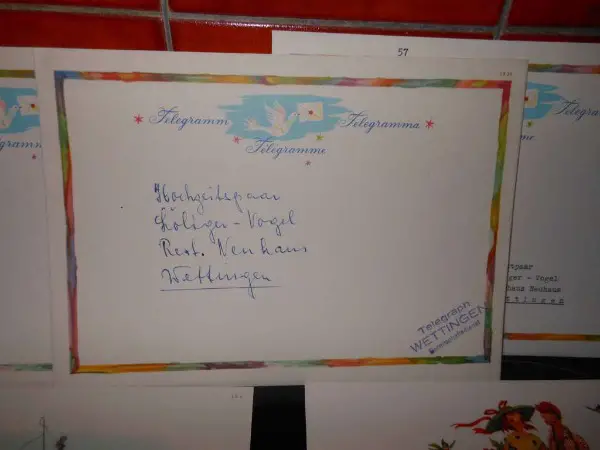 57
Telegramm
Telegramma
Telegramme
Hochzeitspaar
Löliger - Vogel
Rest. Neuhaus
Wettingen
Telegraph
WETTINGEN
tpaar
ger - Vogel
haus Neuhaus
ttingen